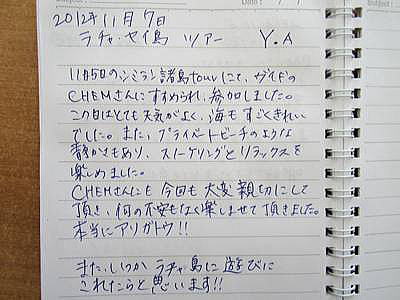 2012年11月7日
ラチャ・ヤイ島 ツアー Y.A
11月5日のシミラン諸島tourにて、ガイドの
CHEMさんにすすめられ、参加しました。
この日はとても天気がよく、海もすごくきれい
でした。また、プライベートビーチのような
静かさもあり、スノーケリングとリラックスを
楽しめました。
CHEMさんにも今回も大変親切にして
頂き、何の不安もなく楽しませて頂きました。
本当にアリガトウ!!
また、いつか ラチャ島に遊びに
これたらと思います!!